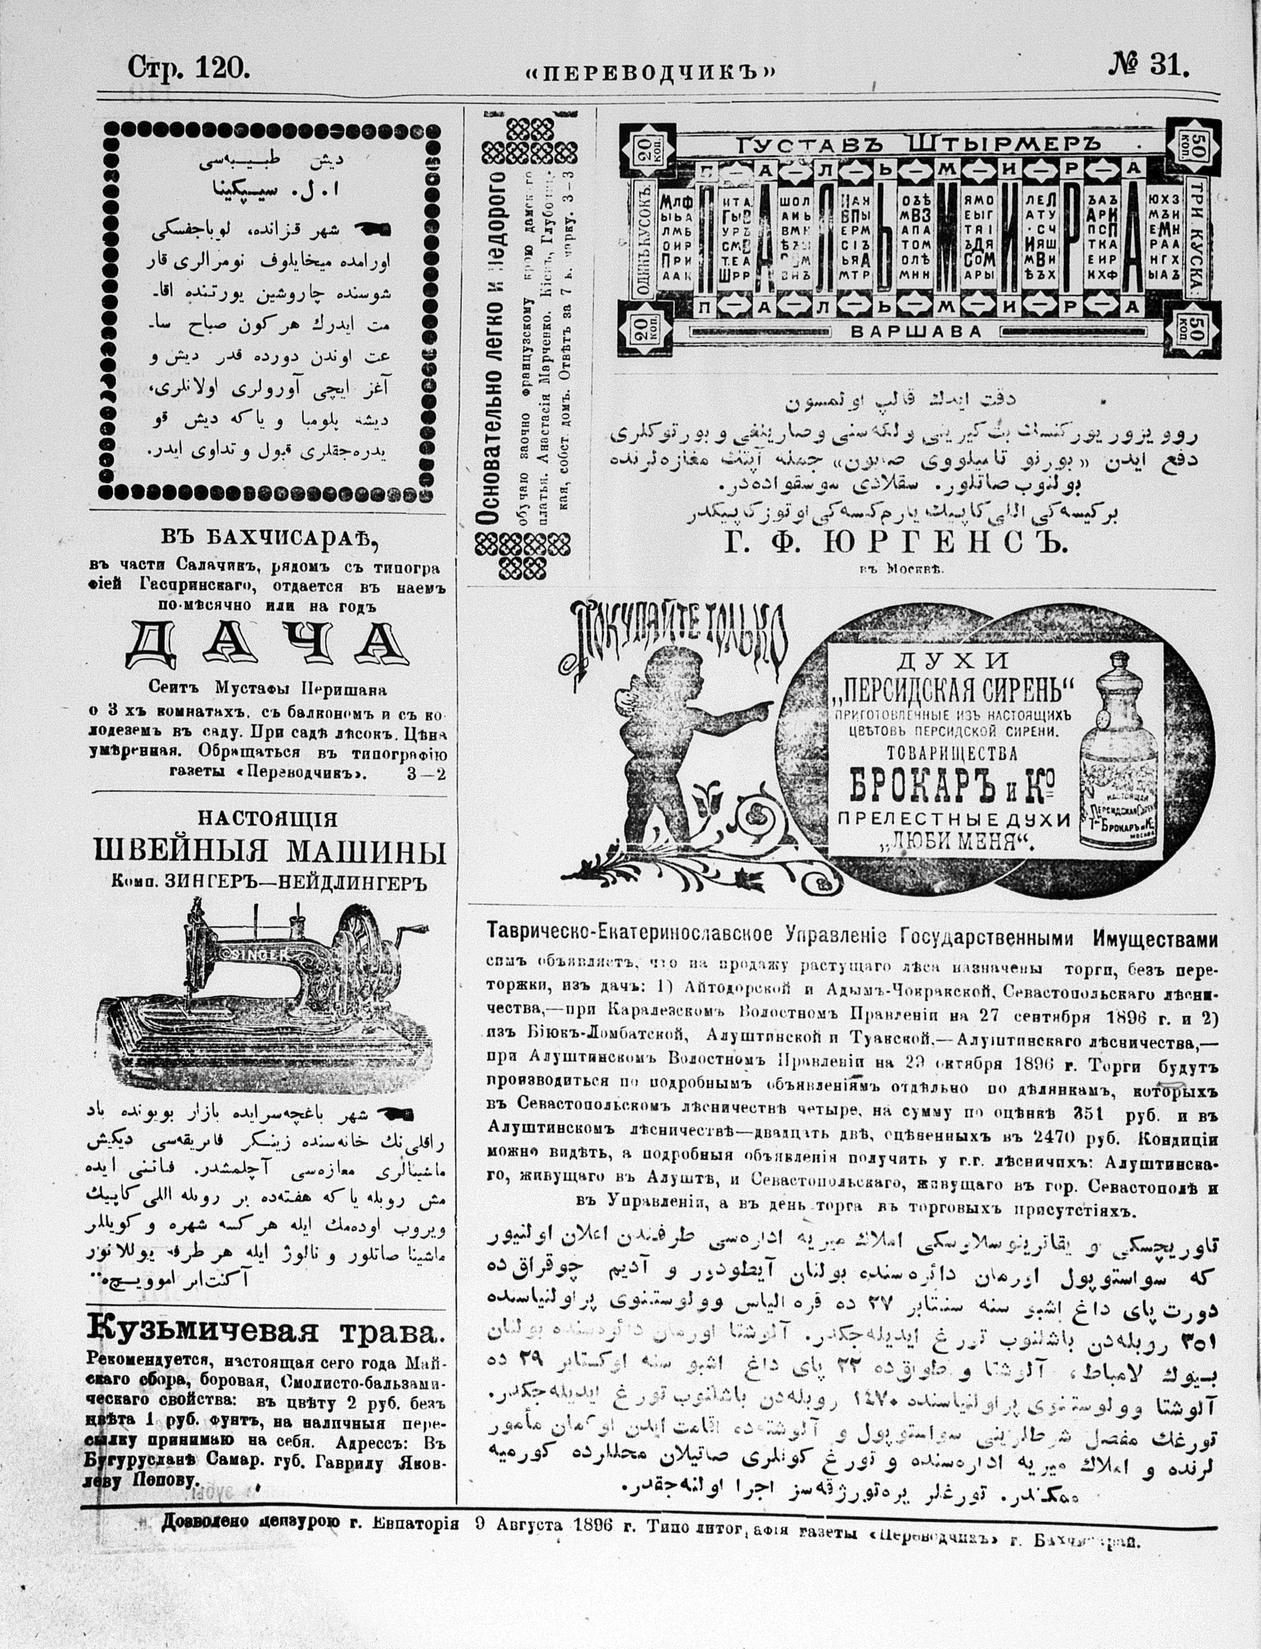 Стр. 120.
«ПЕРЕВОДЧИКЪ»
№ 31.
ديش طبيبه‌سى
ا. ل. سيپكينا
شهر قزانده، لوباجفسكى
اورامده ميخايلوف نومرالرى قار
شوسنده چاروشين يورتنده اقا-
مت ايدرك هر كون صباح سا-
عت اوندن دورده قدر ديش و
آغز ايچى آورولرى اولانلرى،
ديشه پلومبا و ياكه ديش قو
يدره‌جقلرى قبول و تداوى ايدر.
ВЪ БАХЧИСАРАѢ,
въ части Салачик, рядомъ съ типогра
фіей Гаспринскаго, отдается въ наемъ
по-мѣсячно или на годъ
ДАЧА
Сеитъ Мустафы Перишана
о 3 хъ комнатахъ, съ балкономъ и съ ко
лодеземъ въ саду. При садѣ лѣсокъ. Цѣна
умѣренная. Обращаться въ типографію
газеты «Переводчикъ». 3—2
НАСТОЯЩІЯ
ШВЕЙНЫЯ МАШИНЫ
Комп. ЗИНГЕРЪ—НЕЙДЛИНГЕРЪ
SINGER
شهر باغچه‌سرايده بازار بويونده باد
راقلى‌نك خانه‌سنده زينكر فابريقه‌سى ديكيش
ماشينالرى مغازه‌سى آچلمشدر.
مش روبله ياكه هفته‌ده بر روبله اللى كاپيك
ويروب اوده‌مك ايله هر كسه شهره و كويللر
ماشينا صاتلور و نالوژ ايله هر طرفه يوللانور
Кузьмичевая трава.
Рекомендуется, настоящая сего года Май-
скаго сбора, боровая, Смолисто-бальзами-
ческаго свойства: въ цвѣту 2 руб. безъ
цвѣта 1 руб. фунтъ, на наличныя пере-
сылку принимаю на себя. Адрессъ: Въ
Бугурусланѣ Самар. губ. Гаврилу Яков-
леву Попову.
Основательно легко и недорого
обучаю заочно французскому крою дамскаго
платья. Анастасія Марченко. Кіевъ, Глубочиц-
кая, собст. дом. Отвѣтъ за 7 к. марку. 3—3
ГУСТАВЪ ШТЫРМЕРЪ
20 коп.
50 коп.
ОДИНЪ КУСОКЪ
ТРИ КУСКА
ПАЛЬМИРА
ПАЛЬМИРА
ПАЛЬМИРА
20 коп.
50 коп.
ВАРШАВА
دقت ايدك قالپ اولمسون
دفع ايدن «بورنو تاميلووى صابون» جمله آپتك مغازه‌لرنده
بولنوب صاتلور.
بر كيسه‌كى اللى كاپيك يارم كيسه‌كى اوتوز كاپيكدر
Г. Ф. ЮРГЕНСЪ.
въ Москвѣ.
ПОКУПАЙТЕ ТОЛЬКО
ДУХИ
„ПЕРСИДСКАЯ СИРЕНЬ“
ПРИГОТОВЛЕННЫЕ ИЗЪ НАСТОЯЩИХЪ
ЦВѢТОВЪ ПЕРСИДСКОЙ СИРЕНИ.
ТОВАРИЩЕСТВА
БРОКАРЪ и Ко
ПРЕЛЕСТНЫЕ ДУХИ
„ЛЮБИ МЕНЯ“.
НАСТОЯЩІЙ
ПЕРСИДСКАЯ СИРЕНЬ
Т-во БРОКАРЪ и Ко
МОСКВА
Таврическо-Екатеринославское Управленіе Государственными Имуществами
симъ объявляетъ, что на продажу растущаго лѣса назначены торги, безъ пере-
торжки, изъ дачъ: 1) Айтодорской и Адымъ-Чокракской, Севастопольскаго лѣсни-
чества,—при Каралезскомъ Волостномъ Правленіи на 27 сентября 1896 г. и 2)
изъ Біюкъ-Ломбатской, Алуштинской и Туакской,—Алуштинскаго лѣсничества,—
при Алуштинскомъ Волостномъ Правленіи на 29 октября 1896 г. Торги будутъ
производиться по подробнымъ объявленіямъ отдѣльно по дѣлянкамъ, которыхъ
въ Севастопольскомъ лѣсничествѣ четыре, на сумму по оцѣнкѣ 351 руб. и въ
Алуштинскомъ лѣсничествѣ—двадцать двѣ, оцѣненныхъ въ 2470 руб. Кондиціи
можно видѣть, а подробныя объявленія получить у г.г. лѣсничихъ: Алуштинска-
го, живущаго въ Алуштѣ, и Севастопольскаго, живущаго въ гор. Севастополѣ и
въ Управленіи, а въ день торга въ торговыхъ присутствіяхъ.
تاوريچسكى و يقاترينوسلاوسكى املاك ميريه اداره‌سى طرفندن اعلان اولنيور
كه سواستوپول اورمان دائره‌سنده بولنان آيطودور و آديم چوقراق ده
دورت پاى داغ اشبو سنه سنتابر ٢٧ ده قره الياس وولوستنوى پراولنياسنده
٣٥١ روبله‌دن باشلنوب تورغ ايديله‌جكدر. آلوشتا اورمان دائره‌سنده بولنان
بيوك لامباط، آلوشتا و طواق‌ده ٢٢ پاى داغ اشبو سنه اوكتابر ٢٩ ده
آلوشتا وولوستنوى پراولنياسنده ٢٤٧٠ روبله‌دن باشلنوب تورغ ايديله‌جكدر.
تورغك مفصل شرطلرينى سواستوپول و آلوشته‌ده اقامت ايدن اورمان مأمور
لرنده و املاك ميريه اداره‌سنده و تورغ كونلرى صاتيلان محللرده كورميه
ممكندر. تورغلر پره‌تورژقه‌سز اجرا اولنه‌جقدر.
Дозволено цензурою г. Евпаторія 9 Августа 1896 г. Типо литографія газеты «Переводчикъ» г. Бахчисарай.